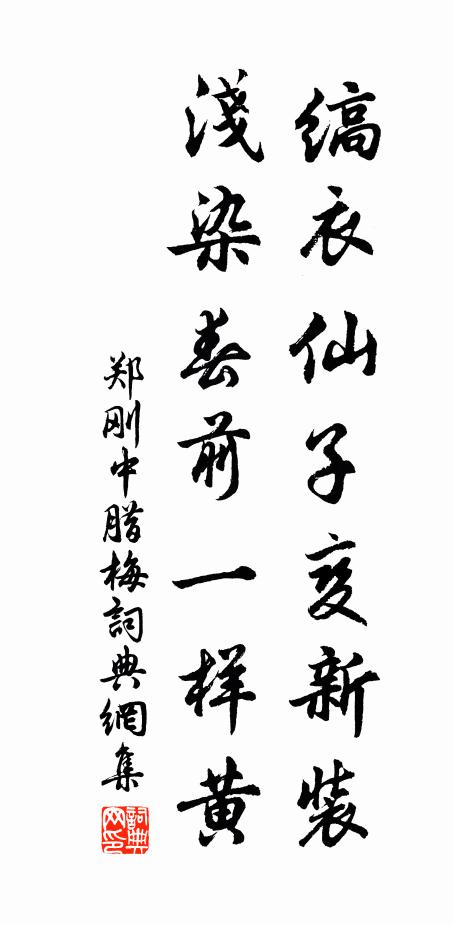 缟衣仙子变新装
淺染春前一样黄
郑刚中腊梅詞典網集
詞典网印